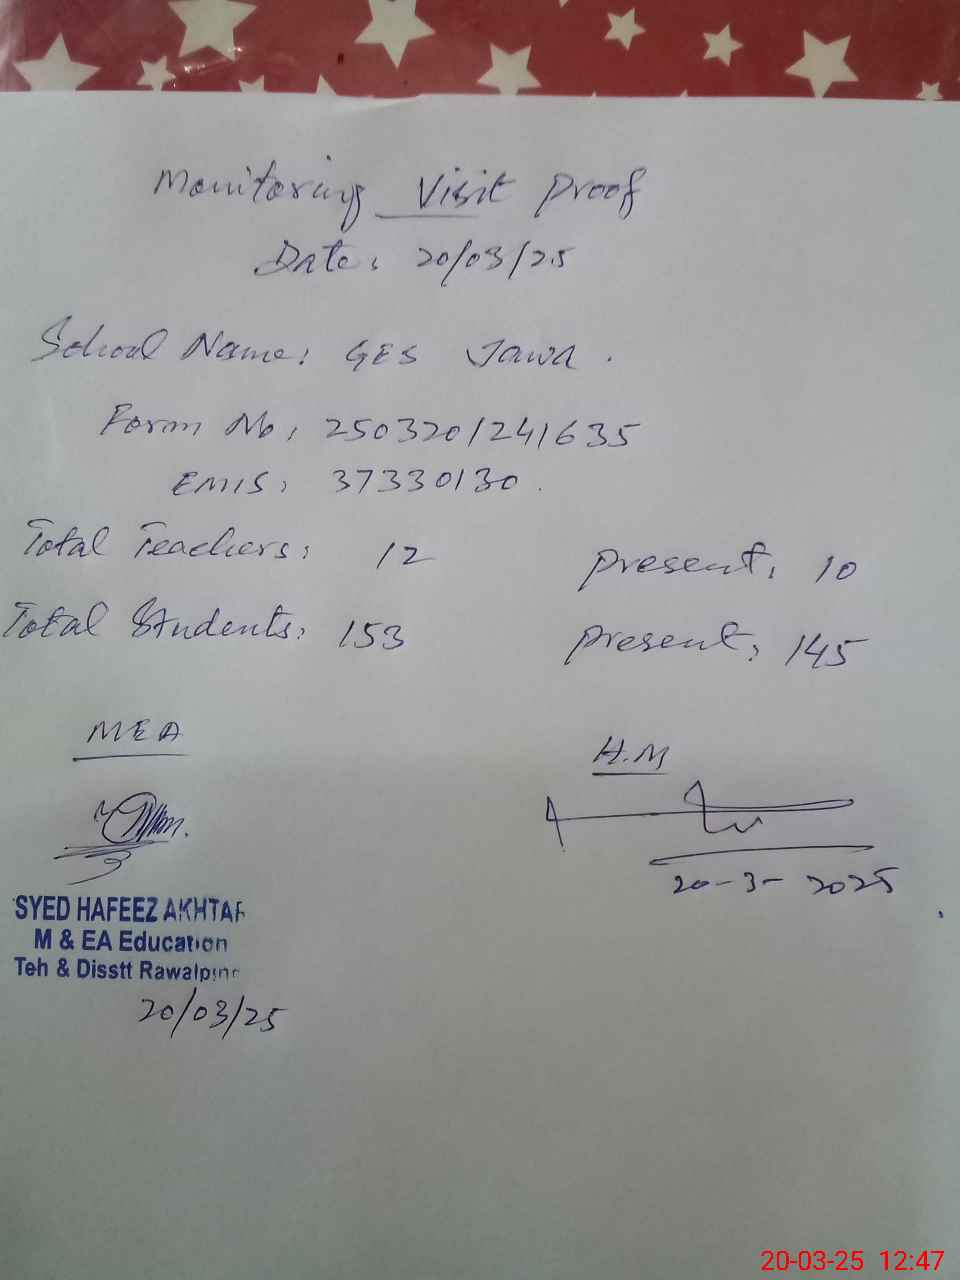 Monitoring Visit Proof
Date: 20/03/25
School Name: GES Jawa.
Form No: 2503201241635
EMIS: 37330130.
Total Teachers: 12 Present: 10
Total Students: 153 Present: 145
MEA H.M
20-3-2025
SYED HAFEEZ AKHTAR
M & EA Education
Teh & Disstt Rawalpind
20/03/25
20-03-25 12:47